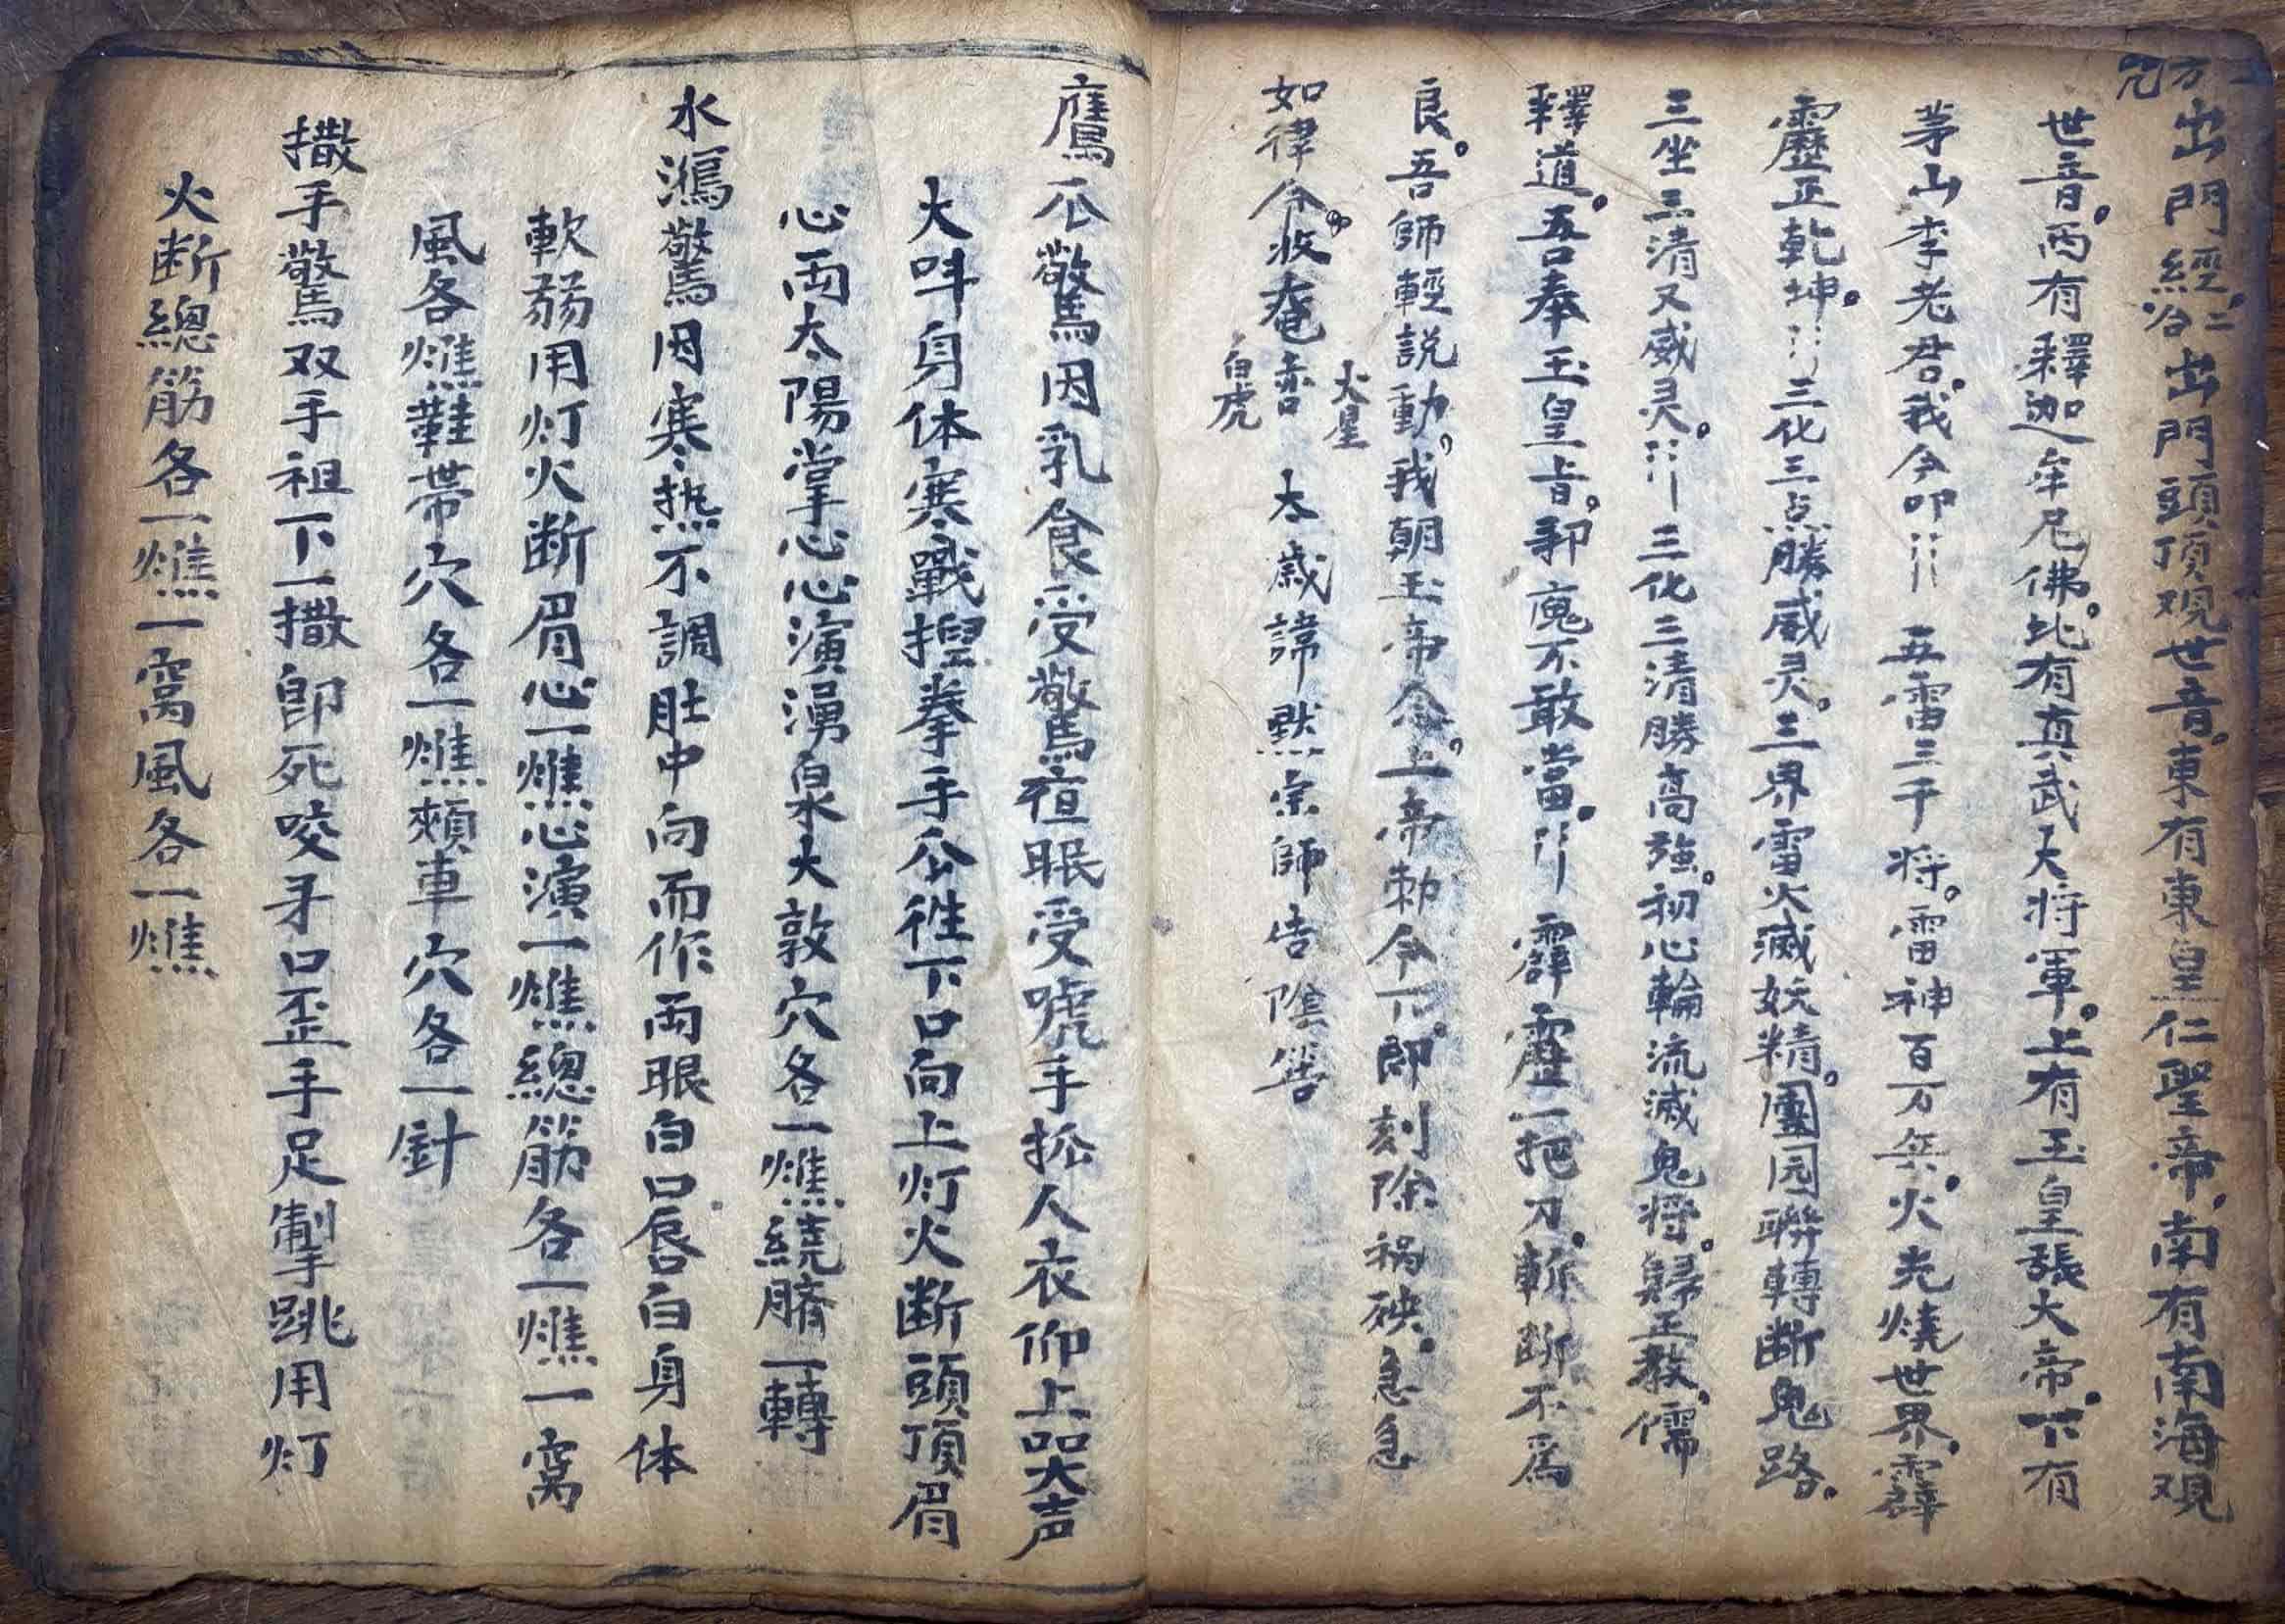 五方咒
出門經。出門頭頂观世音。東有東皇仁聖帝，南有南海观
世音。西有釋迦牟尼佛。北有真武大将軍。上有玉皇張大帝。下有
茅山李老君。我今叩〻五雷三千将。雷神百万兵。火光燒世界，霹
靂正乾坤。〻三化三点勝威灵。三界雷火滅妖精。團园聯轉断鬼路。
三坐三清又威灵。〻三化三清勝高強。初心輪流滅鬼将。歸正教，儒
釋道。吾奉玉皇旨。邪魔不敢當。〻霹靂一把刀。斬断不爲
良。吾師輕説動，我朝玉帝令。上帝勅令下。即刻除祸殃。急急
如律令。收
火星
白虎
太歲諱默宗師告陰箁
鷹爪驚因乳食受驚夜眠受唬手抓人衣仰上叩大声
大呌身体寒戰揑拳手爪徃下口向上灯火断頭頂眉
心両太陽掌心心演湧泉大敦穴各一燋繞臍一轉
水瀉驚因寒热不調肚中向而作両眼白口唇白身体
軟弱用灯火断眉心一燋心演一燋總筋各一燋一窩
風各燋鞋帯穴各一燋頰車穴各一針
撒手驚双手祖下一撒即死咬牙口歪手足掣跳用灯
火断總筋各一燋一窩風各一燋